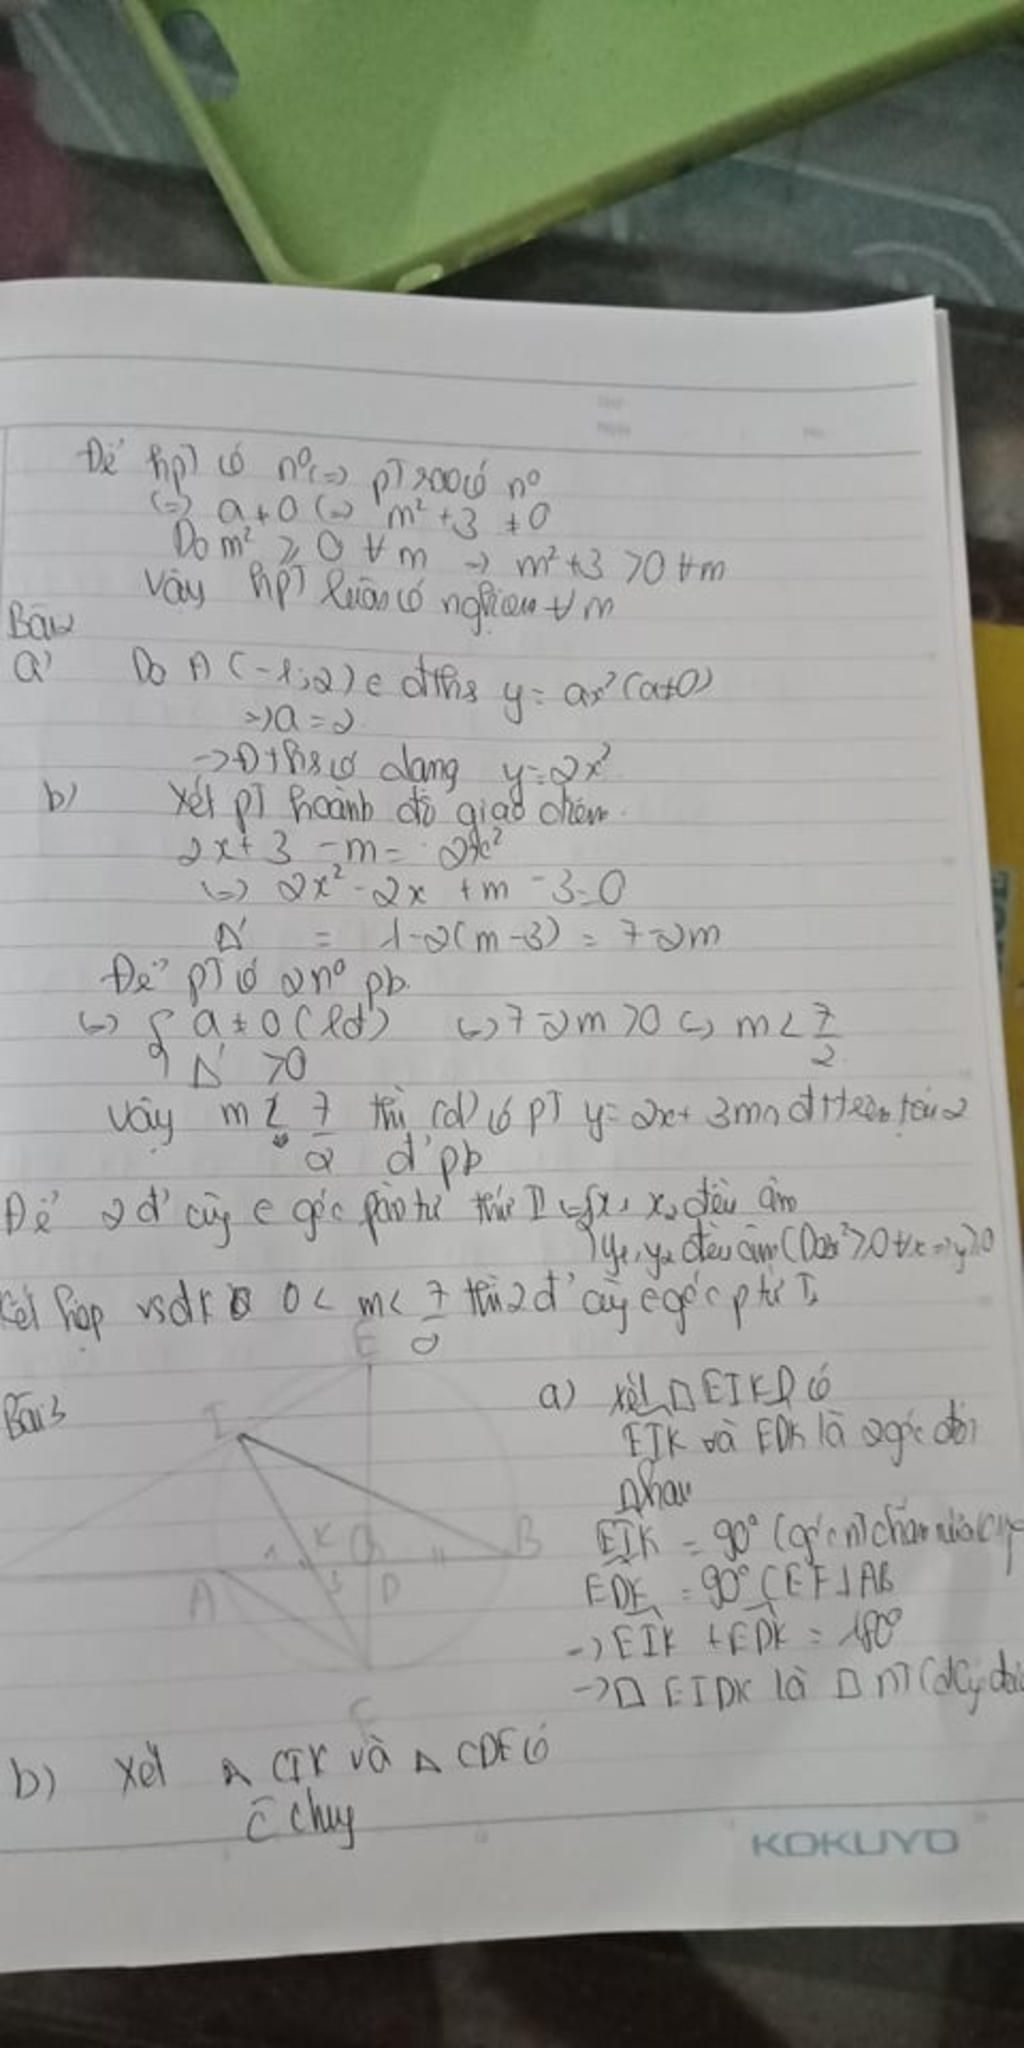 Để hpT có n⁰ (=) pT có n⁰
(=) a ≠ 0 (=) m² + 3 ≠ 0
Do m² ≥ 0 ∀ m -> m² + 3 > 0 ∀ m
Vậy hpT luôn có nghiệm ∀ m
Bài 2
a) Do A (-1; 2) ∈ đths y = ax² (a≠0)
=> a = 2
-> Đths có dạng y = 2x²
b) Xét pT hoành độ giao điểm
2x + 3 - m = 2x²
(=) 2x² - 2x + m - 3 = 0
Δ' = 1 - 2(m - 3) = 7 - 2m
Để pT có 2 n⁰ pb
(=) { a ≠ 0 (lđ) (=) 7 - 2m > 0 (=) m < 7/2
Δ' > 0
Vậy m < 7/2 thì (d) có pT y = 2x + 3m tại 2
đ' pb
Để 2 đ' cùng ∈ góc phần tư thứ II (=) { x₁, x₂ đều âm
y₁, y₂ đều âm (Do 2x² ≥ 0 ∀x => y ≥ 0
Kết hợp vs đk 0 < m < 7/2 thì 2 đ' cùng ∈ góc p tư I
Bài 3
E
I
K
B
A
D
a) Xét EIKD có
EIK và EDK là 2 góc đối
nhau
EIK = 90° (góc nT chắn nửa
EDK = 90° (EF ⊥ AB
-> EIK + EDK = 180°
-> EIDK là nT (
b) Xét Δ CIK và Δ CDE có
C chung
KOKUYO